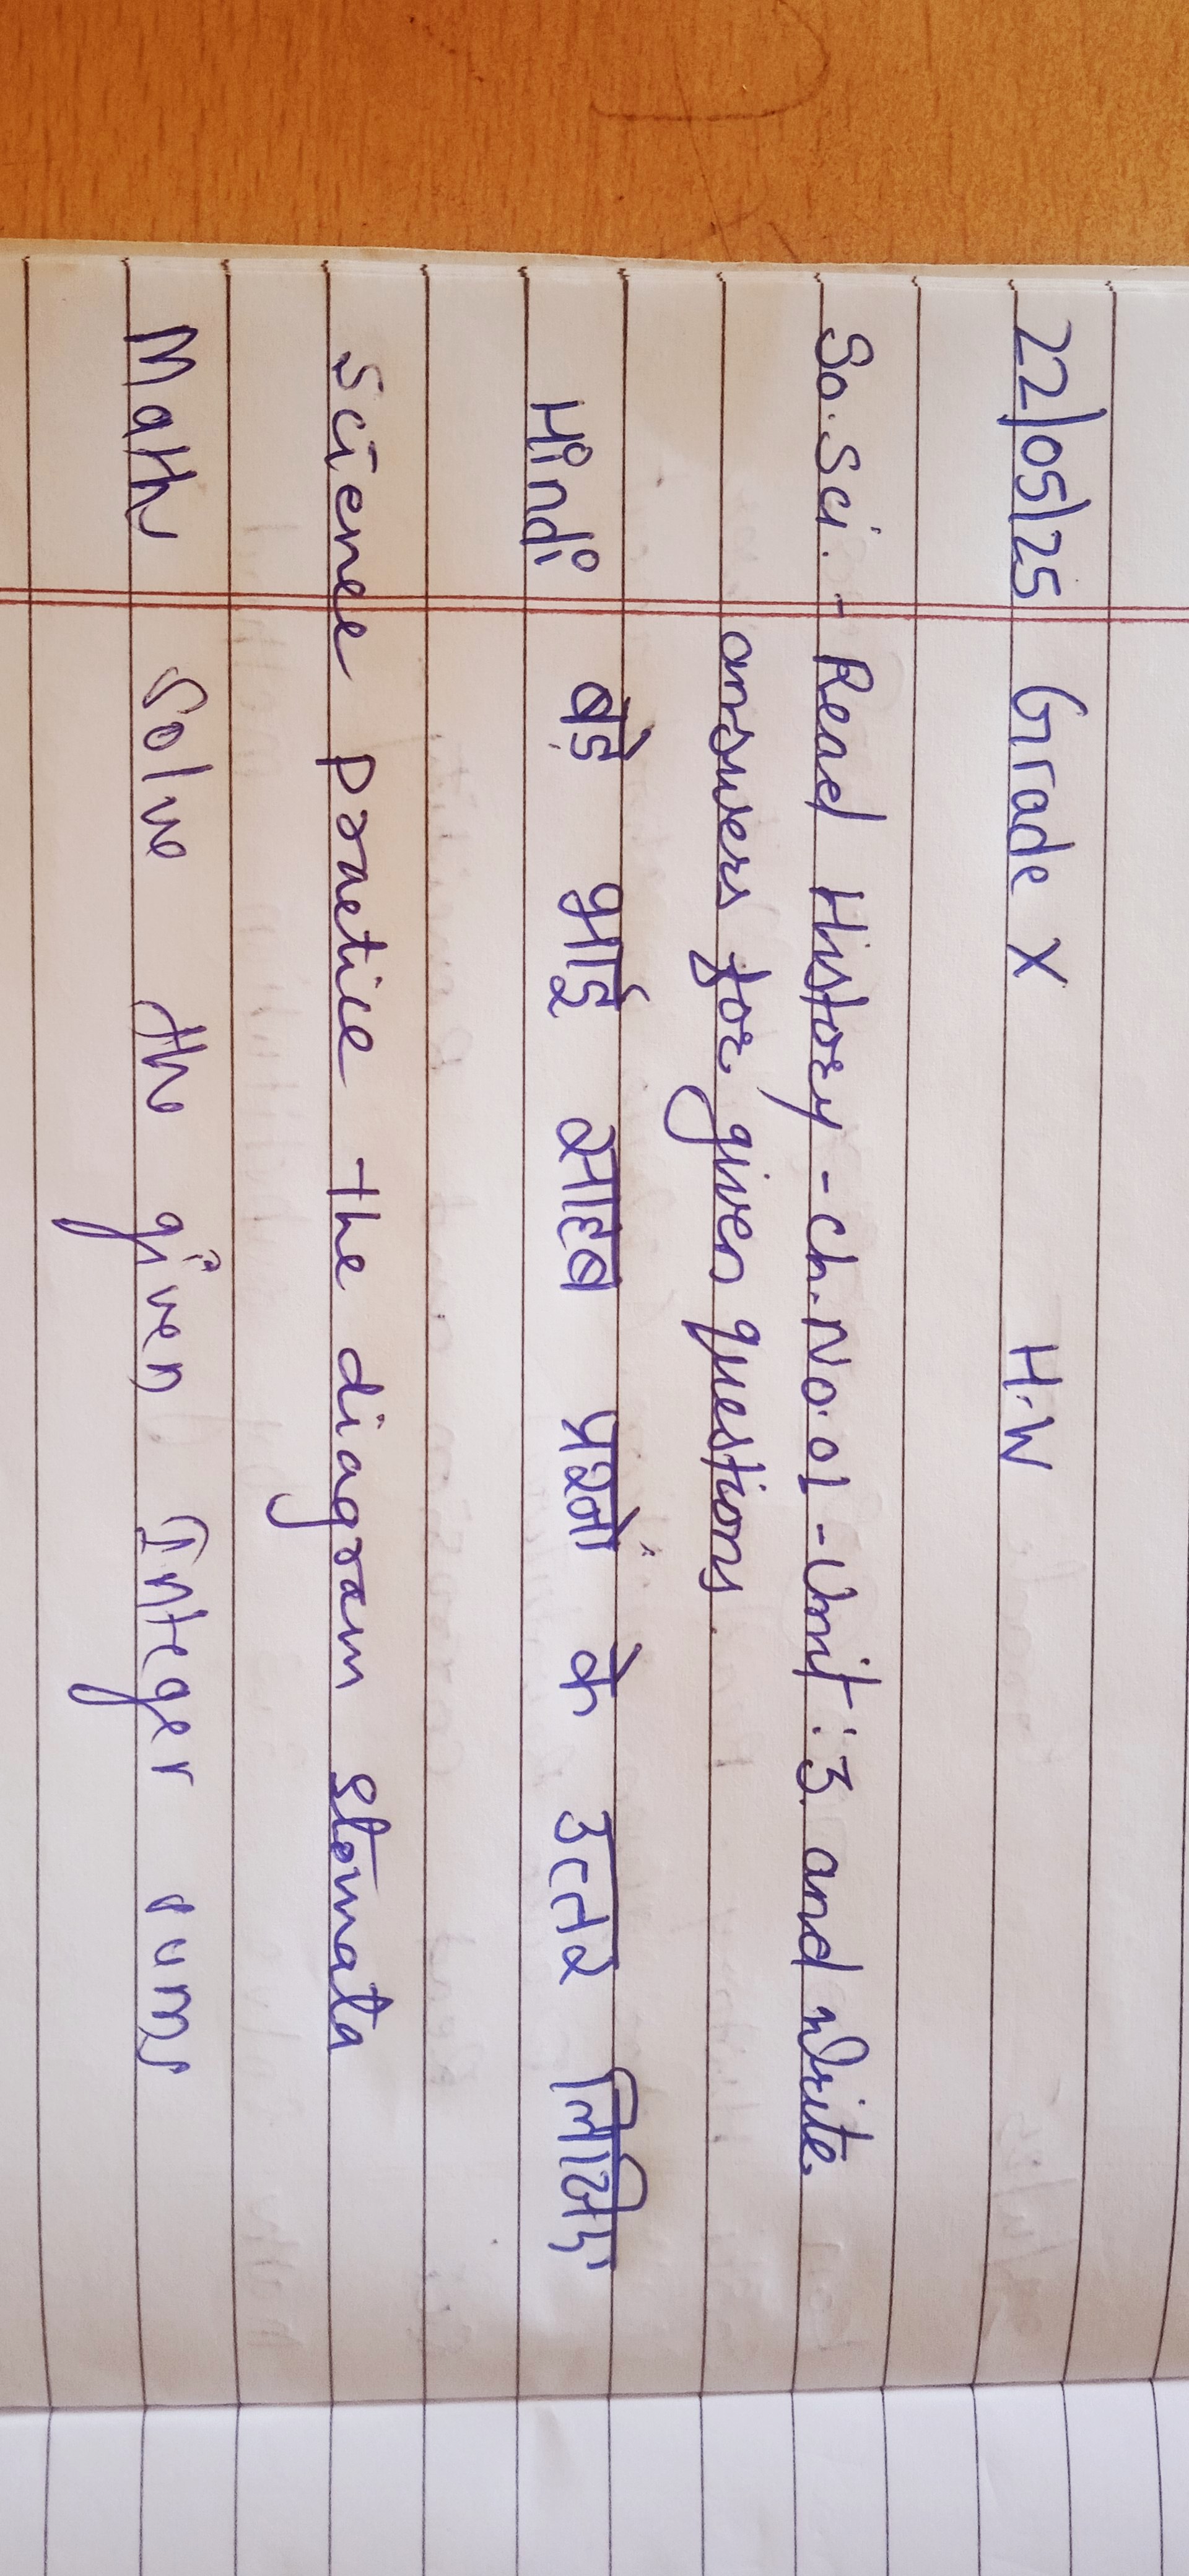 22/05/25 Grade X H.W
So.Sci. - Read History - ch.No.01 - Unit : 3. and write.
answers for given questions.
Hindi बड़े भाई साहब प्रश्नों के उत्तर लिखिए
Science practice the diagram stomata
Math solve the given Integer sums